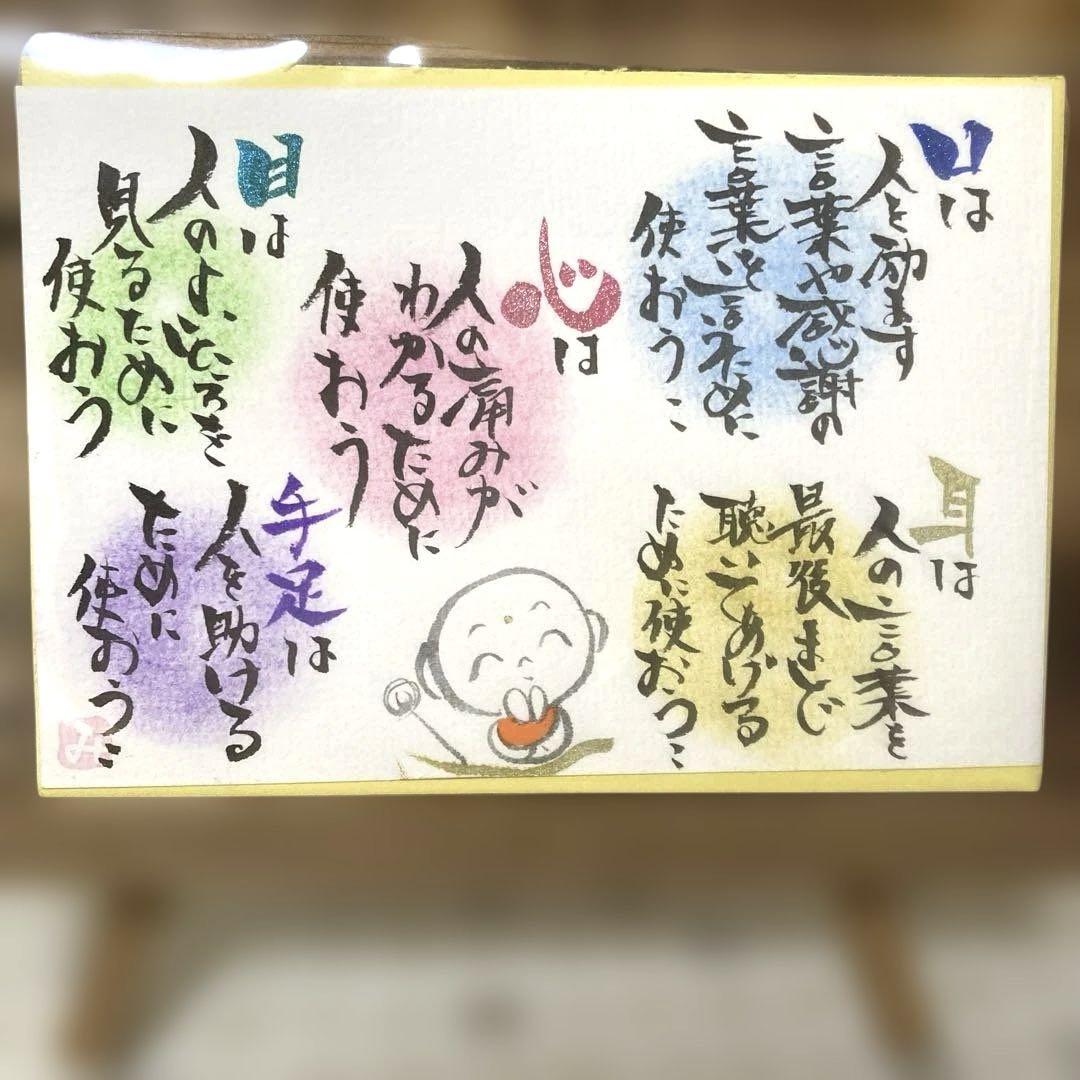 口は
人を励ます
言葉や感謝の
言葉を言うために
使おう
耳は
人の言葉を
最後まで
聴いてあげる
ために使おう
心は
人の痛みが
わかるために
使おう
目は
人のよいところを
見るために
使おう
手足は
人を助ける
ために
使おう
み